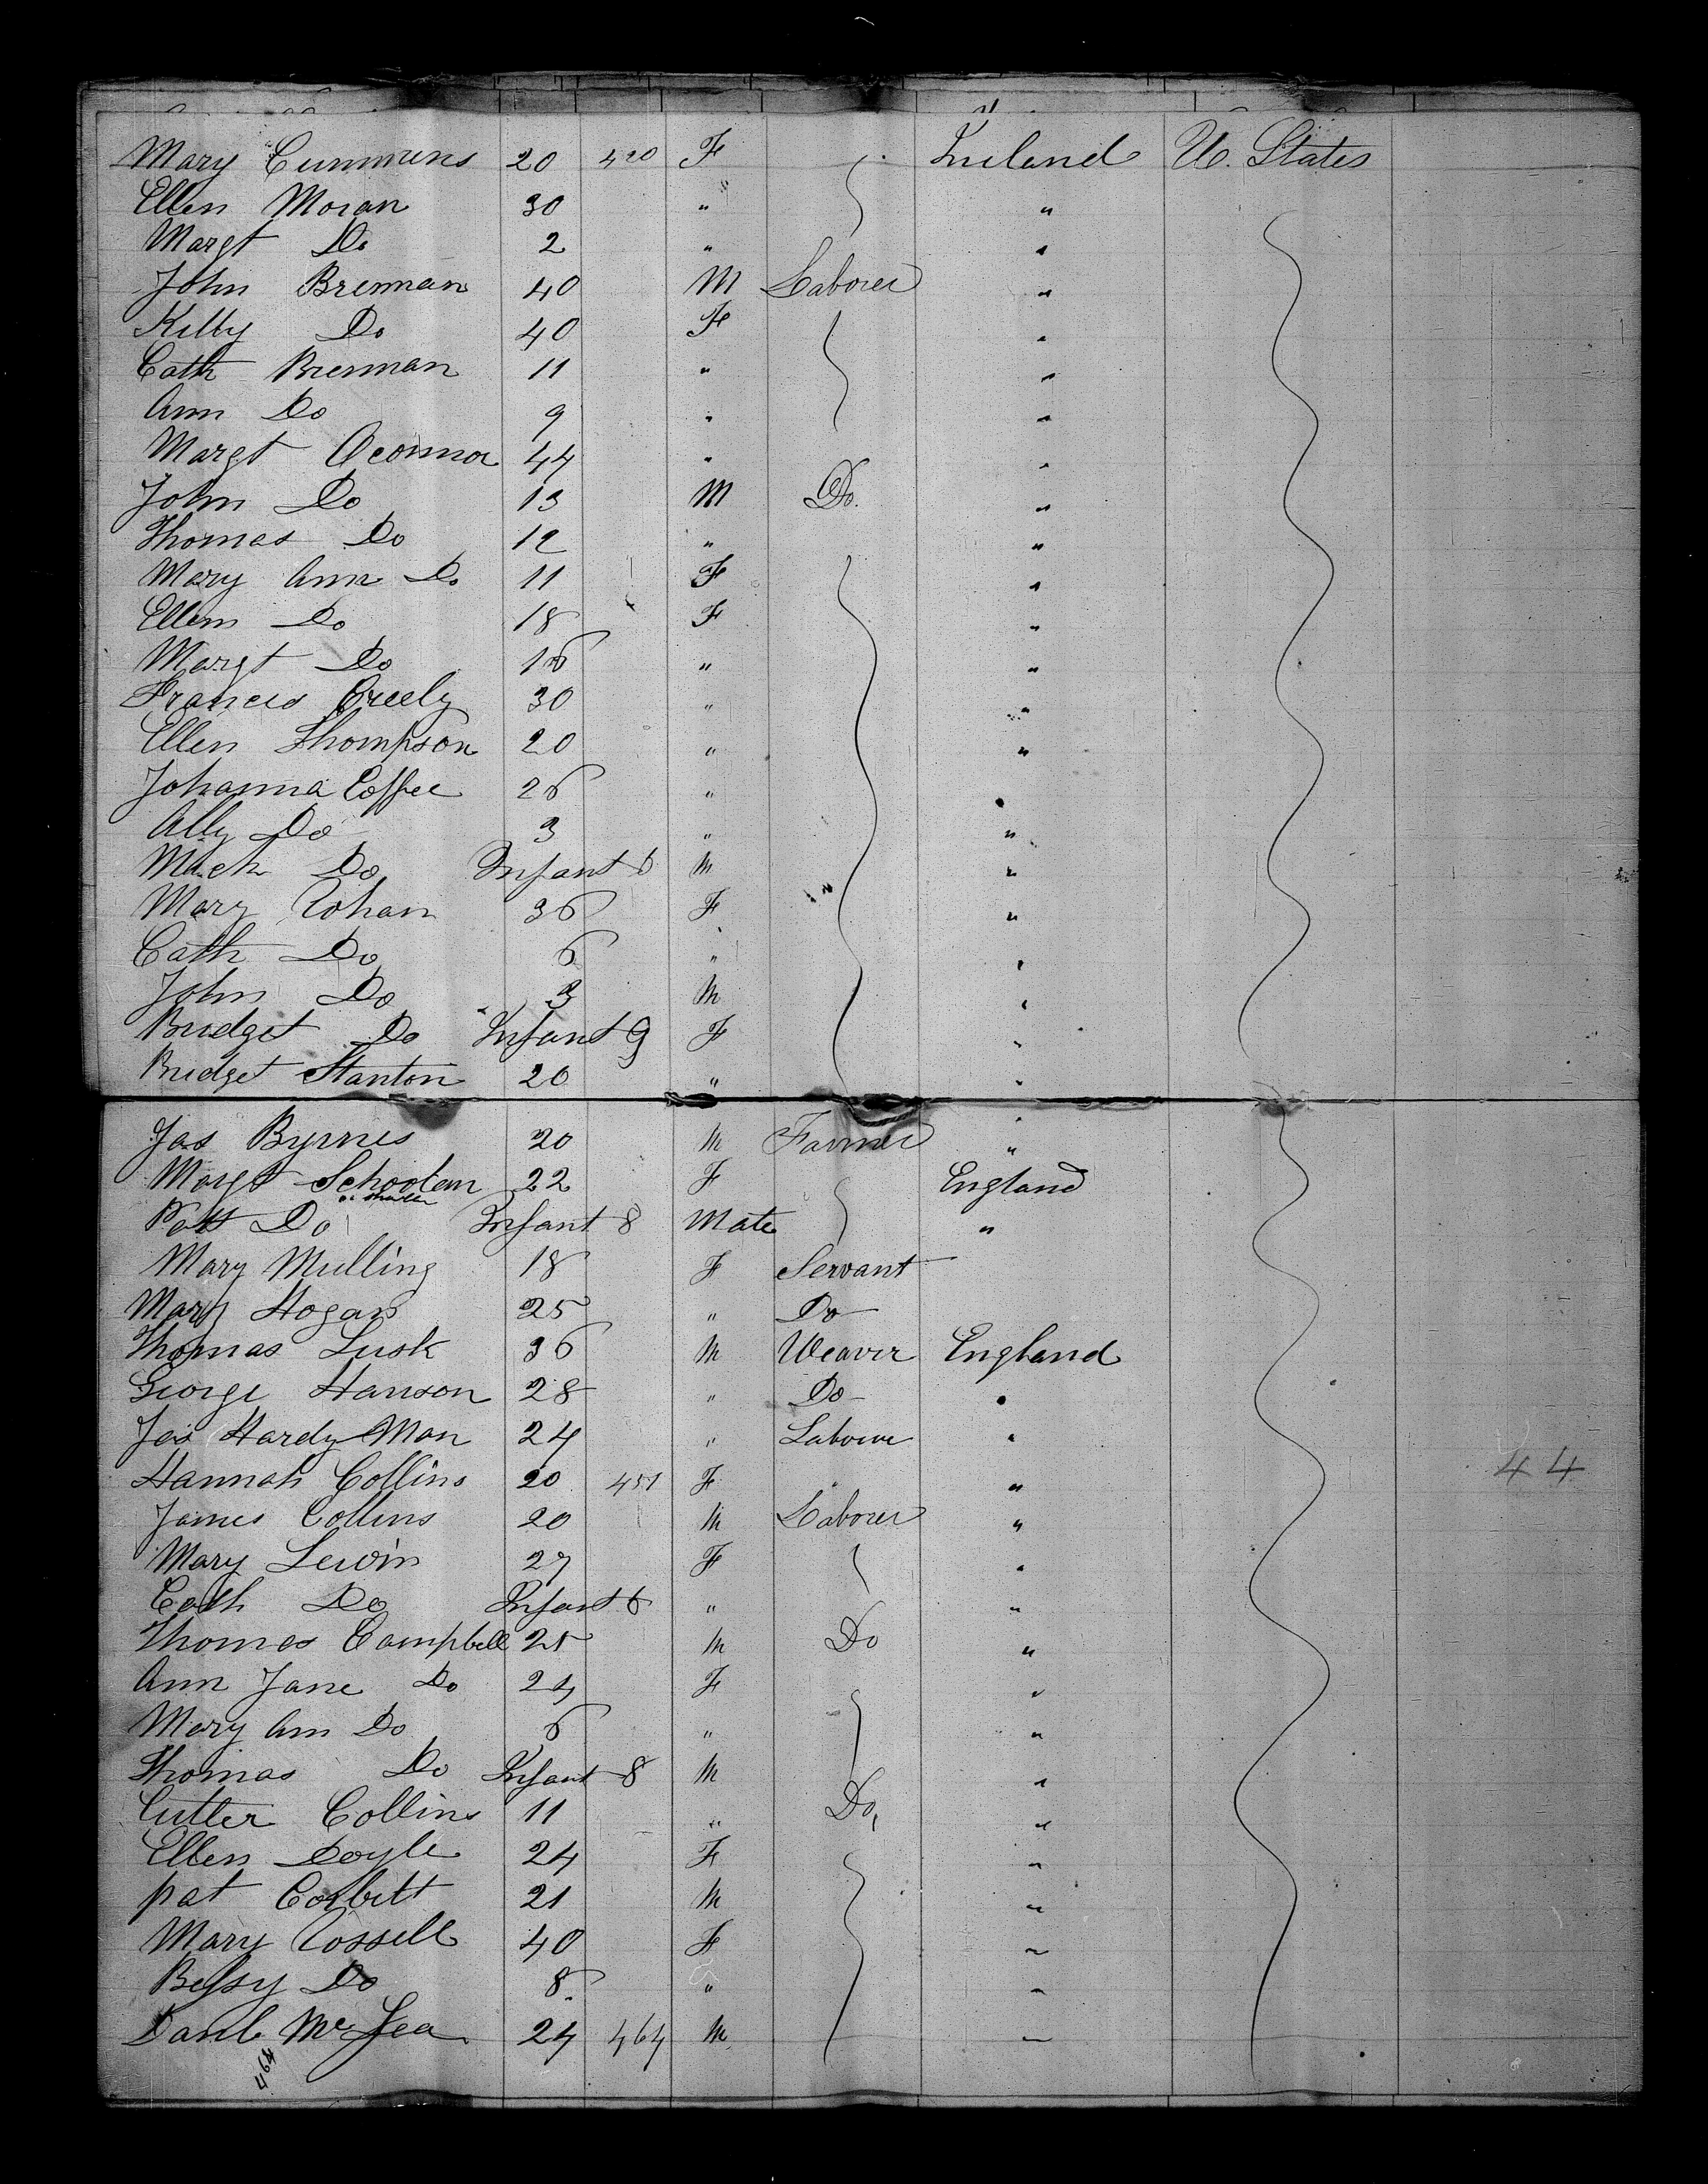 Mary Cummens 20 420 F Ireland U. States
Ellen Moran 30 " "
Margt Do 2 " "
John Brennan 40 M Laborer "
Kitty Do 40 F "
Cath Brennan 11 " "
Ann Do 9 " "
Margt Oconnor 44 " "
John Do 13 M Do. "
Thomas Do 12 " "
Mary Ann Do 11 F "
Ellen Do 18 F "
Margt Do 16 " "
Francis Creely 30 " "
Ellen Thompson 20 " "
Johanna Coffee 26 " "
Ally Do 3 " "
Mich Do Infant 6 M "
Mary Cohan 36 F "
Cath Do 6 " "
John Do 3 M "
Bridget Do Infant 9 F "
Bridget Stanton 20 " "
Jas Byrnes 20 M Farmer "
Margt Schoolen 22 F England
Patt Do Infant 8 Male "
Mary Mulling 18 F Servant
Mary Hogan 25 " Do
Thomas Lusk 36 M Weaver England
George Hanson 28 " Do "
Jas Hardy Man 24 " Laborer "
Hannah Collins 20 451 F "
44
James Collins 20 M Laborer "
Mary Lewin 27 F "
Cath Do Infant 6 " "
Thomas Campbell 25 M Do "
Ann Jane Do 24 F "
Mary Ann Do 6 " "
Thomas Do Infant 8 M "
Cutter Collins 11 " Do, "
Ellen Doyle 24 F "
Pat Corbett 21 M "
Mary Cossell 40 F "
Bessy Do 8 " "
Danl Mc Lea 24 464 M "
464